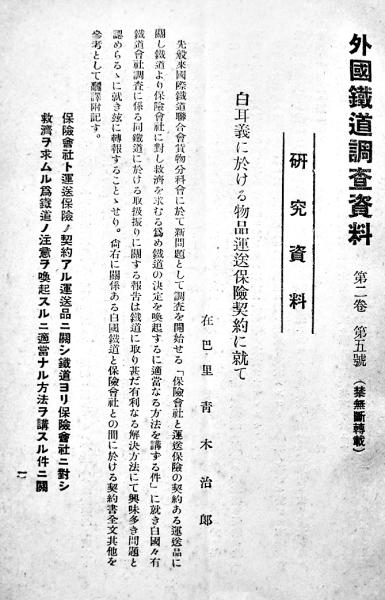 外國鐵道調査資料 第二卷 第五號 (禁無斷轉載)
研究資料
白耳義に於ける物品運送保險契約に就て
在巴里 靑木治郞
先般來國際鐵道聯合會貨物分科會に於て新問題として調査を開始せる「保險會社と運送保險の契約ある運送品に
關し鐵道より保險會社に對し救濟を求むる爲め鐵道の決定を喚起するに適當なる方法を講ずる件」に就き白國々有
鐵道會社調査に係る同鐵道に於ける取扱振りに關する報告は鐵道に取り甚だ有利なる解決方法にて興味多き問題と
認めらるゝに就き玆に轉報することゝせり。尙右に關係ある白國鐵道と保險會社との間に於ける契約書全文其他を
參考として飜譯附記す。
保險會社ト運送保險ノ契約アル運送品ニ關シ鐵道ヨリ保險會社ニ對シ
救濟ヲ求ムル爲鐵道ノ注意ヲ喚起スルニ適當ナル方法ヲ講スル件ニ關